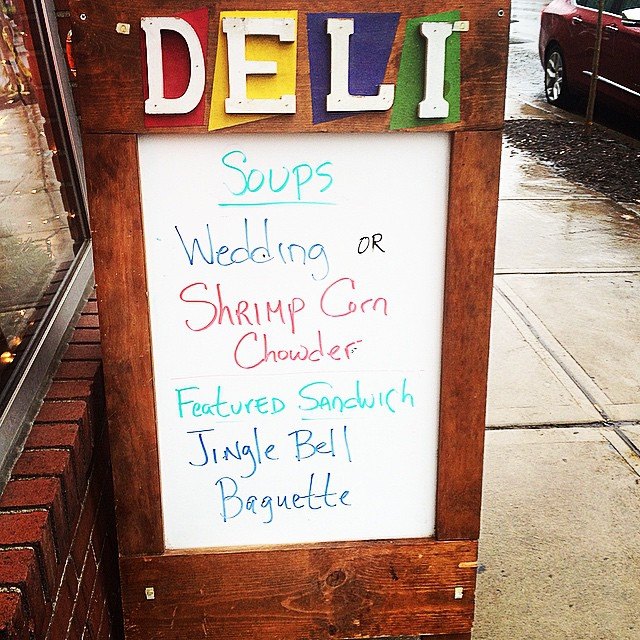 DELI
Soups
Wedding OR
Shrimp Corn
Chowder
Featured Sandwich
Jingle Bell
Baguette